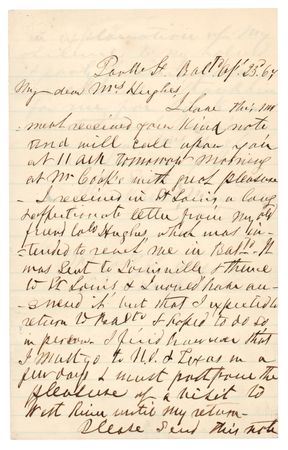 Park St. Balt. Apl. 25th 67
My dear Mrs Hughes,
I have this mo
ment received your kind note
and will call upon you
at 11 a.m. tomorrow morning
at Mr Cook's with great pleasure
- I received in St Louis a long
& affectionate letter from my old
friend Colo Hughes which was in-
tended to reach me in Balto. It
was sent to Louisville & thence
to St Louis & I would have an-
swered it but that I expected to
return to Balto & hoped to do so
in person. I find however that
I must go to & Texas in a
few days & must postpone the
pleasure of a visit to
West River until my return-
Please send this note